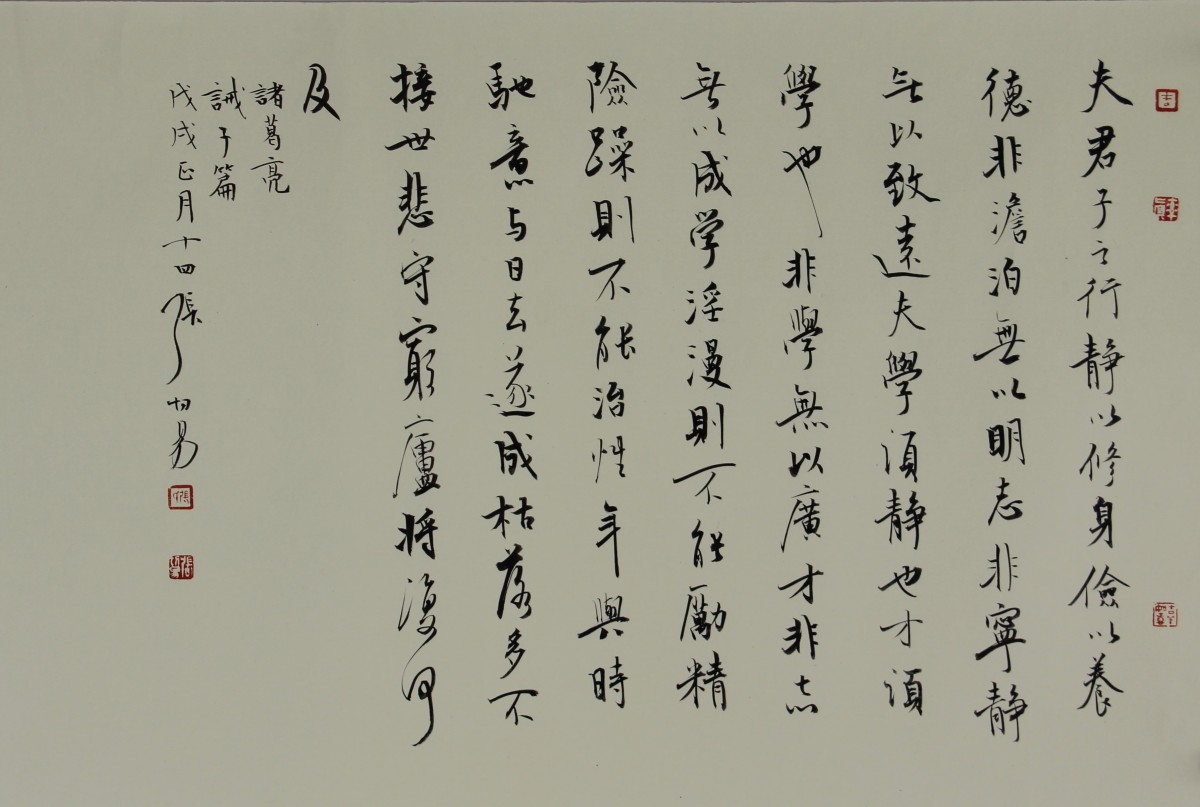 夫君子之行静以修身儉以養
德非澹泊無以明志非寧静
无以致遠夫學須静也才須
學也非學無以廣才非志
無以成学淫漫則不能勵精
險躁則不能治性年與時
馳意与日去遂成枯落多不
接世悲守窮廬將復何
及
諸葛亮
誡子篇
戊戌正月十四張